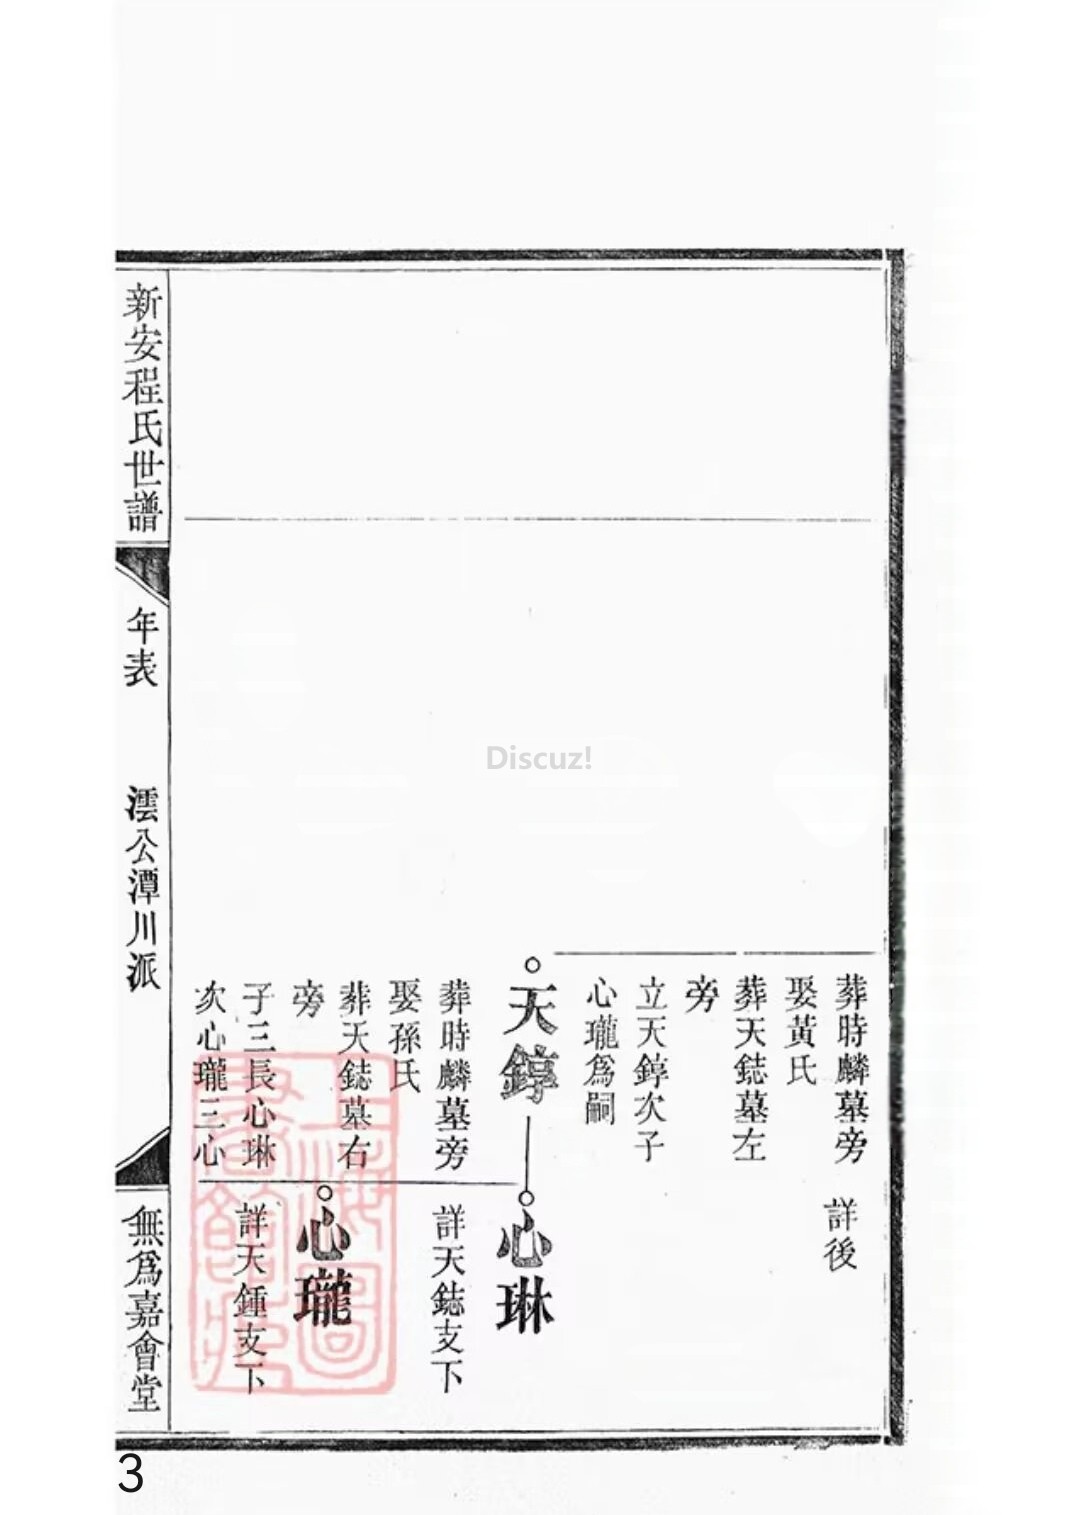 葬時麟墓旁
詳後
娶黃氏
葬天鋕墓左
旁
立天錞次子
心瓏爲嗣
天錞
心琳
葬時麟墓旁
詳天鋕支下
娶孫氏
葬天鋕墓右
旁
心瓏
子三長心琳
詳天鍾支下
次心瓏三心
新安程氏世譜
年表
澐公潭川派
無爲嘉會堂
上海圖書館藏
Discuz!
3